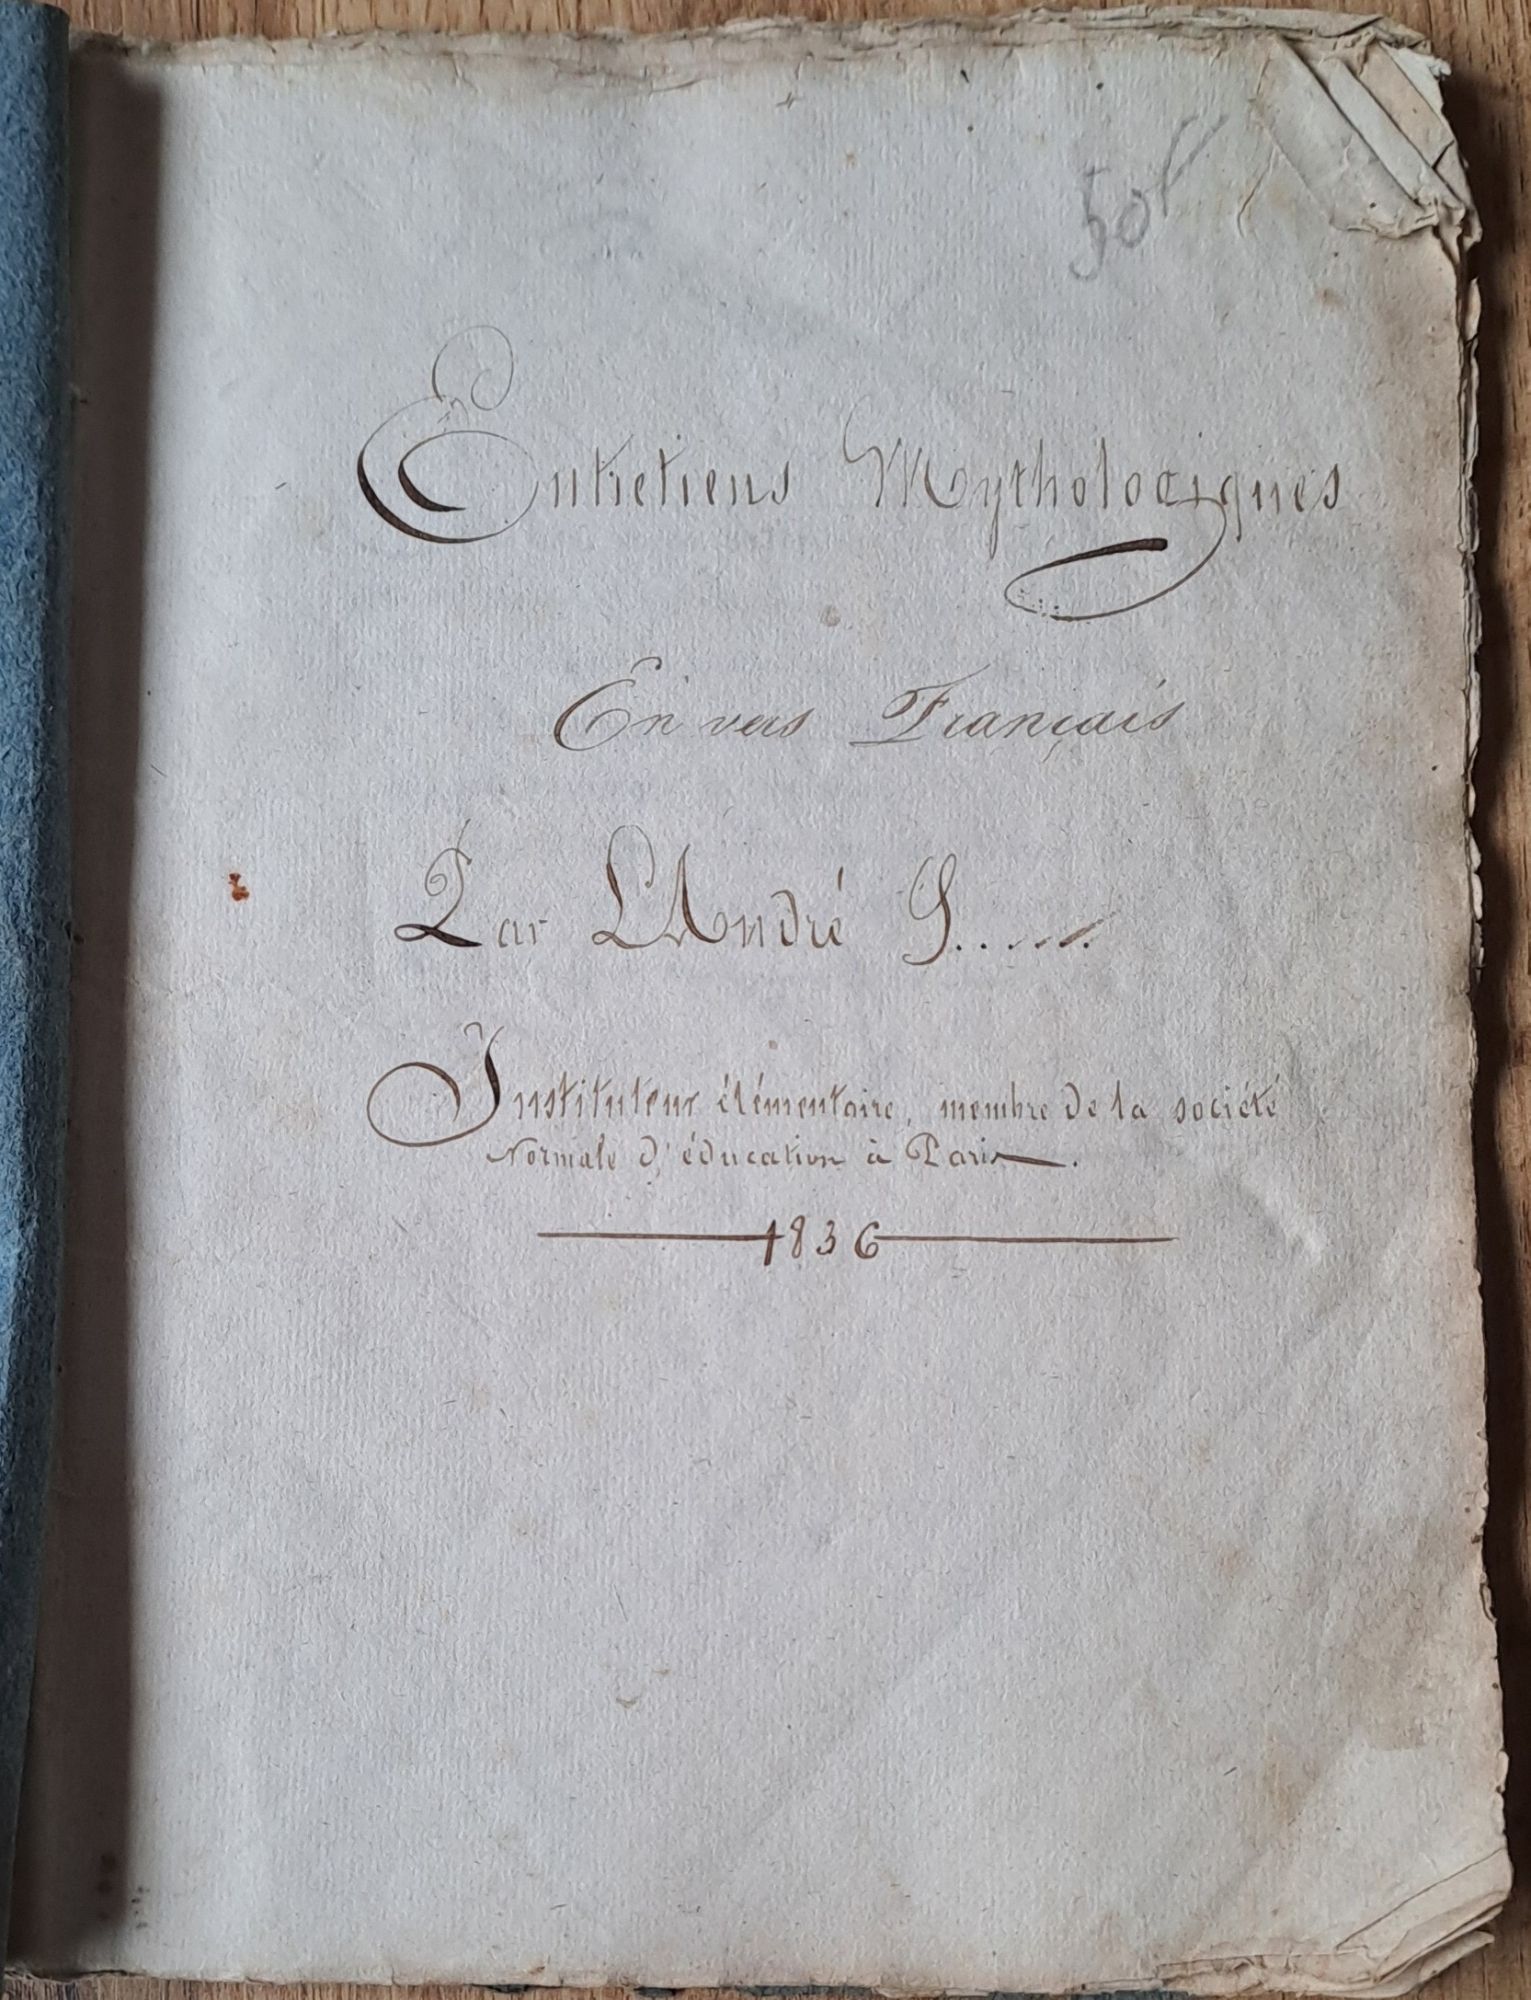 50f
Entretiens Mythologiques
En vers Français
Par LAndré G......
Instituteur élémentaire, membre de la société
Normale d'éducation à Paris.
1836